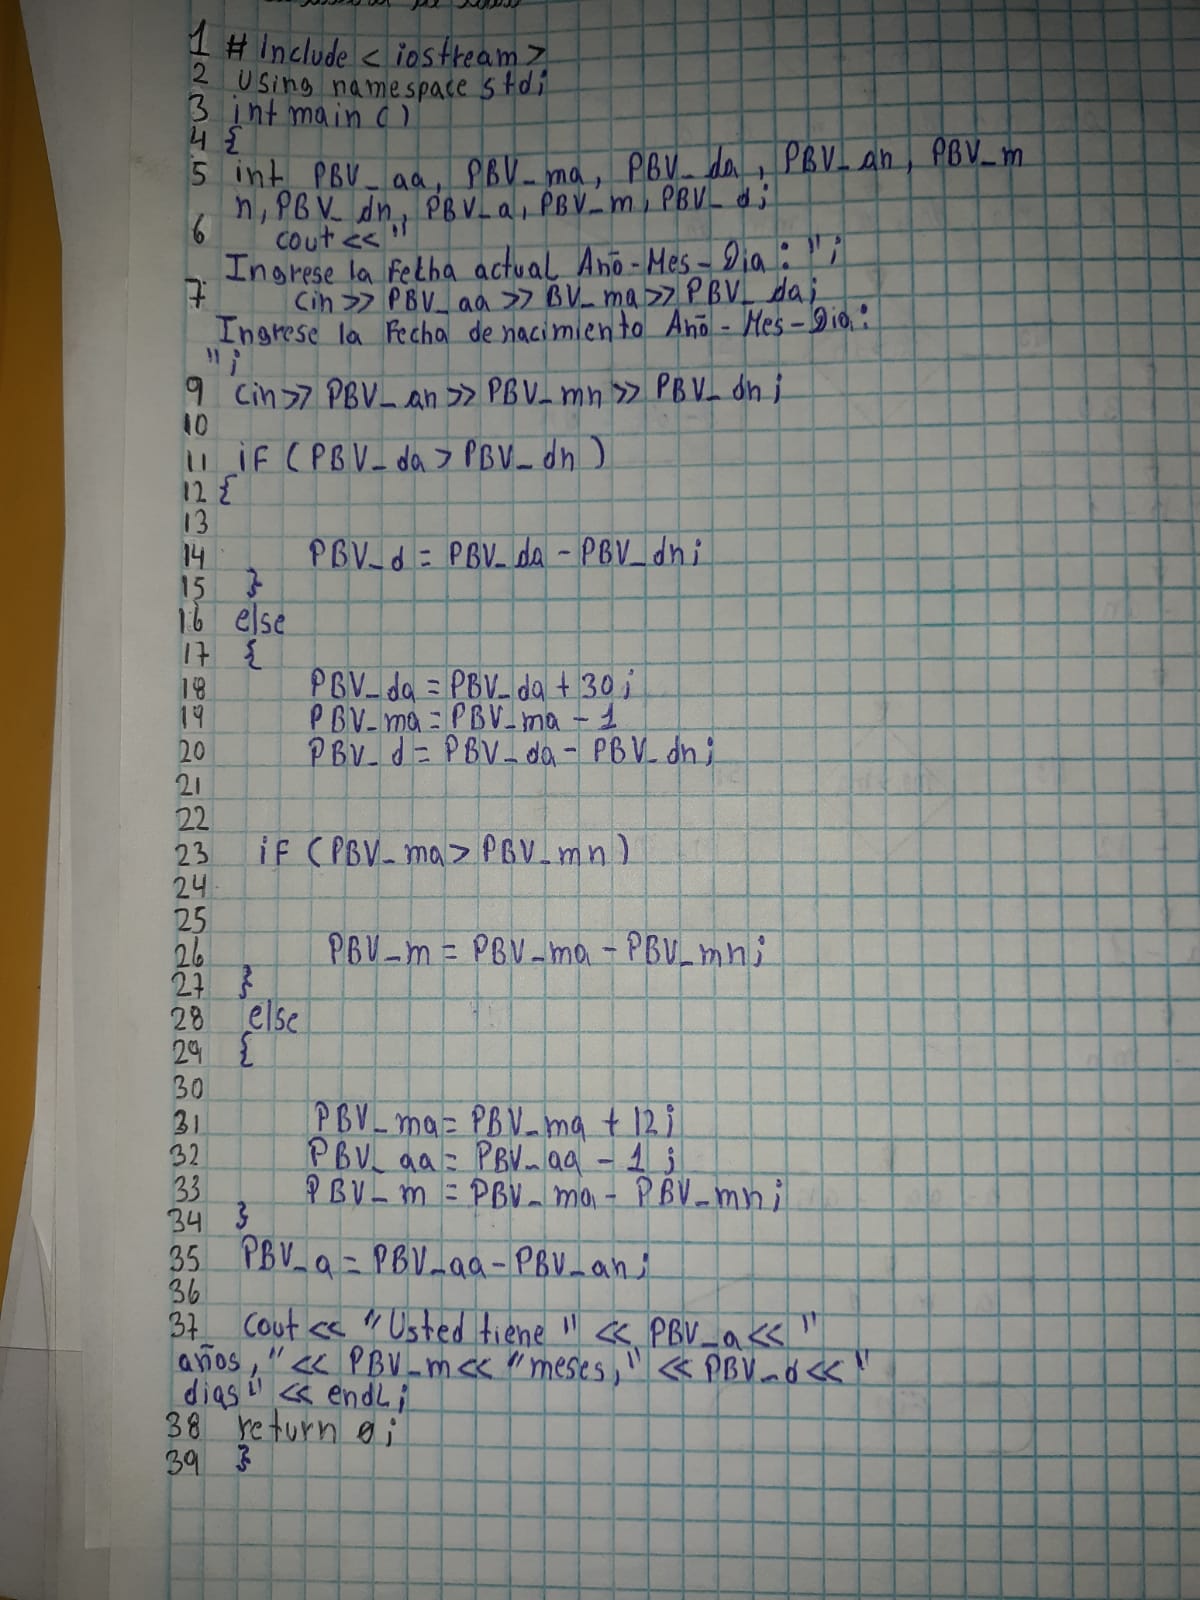 1 # Include < iostream >
2 Using namespace std;
3 int main ()
4 {
5 int PBV_aa, PBV_ma, PBV_da, PBV_an, PBV_m
n, PBV_dn, PBV_a, PBV_m, PBV_d;
6 cout << "
Ingrese la Fetha actual Anō-Mes-Dia: ";
7 cin >> PBV_aa >> BV_ma >> PBV_da;
Ingrese la Fecha de nacimiento Anō-Mes-Dia:
";
9 cin >> PBV_an >> PBV_mn >> PBV_dn;
10
11 iF (PBV_da > PBV_dn)
12 {
13
14 PBV_d = PBV_da - PBV_dn;
15 }
16 else
17 {
18 PBV_da = PBV_da + 30;
19 PBV_ma = PBV_ma - 1
20 PBV_d = PBV_da - PBV_dn;
21
22
23 iF (PBV_ma > PBV_mn)
24
25
26 PBV_m = PBV_ma - PBV_mn;
27 }
28 else
29 {
30
31 PBV_ma = PBV_ma + 12;
32 PBV_aa = PBV_aa - 1;
33 PBV_m = PBV_ma - PBV_mn;
34 }
35 PBV_a = PBV_aa - PBV_an;
36
37 cout << "Usted tiene " << PBV_a << "
años," << PBV_m << "meses," << PBV_d << "
dias" << endL;
38 return 0;
39 }